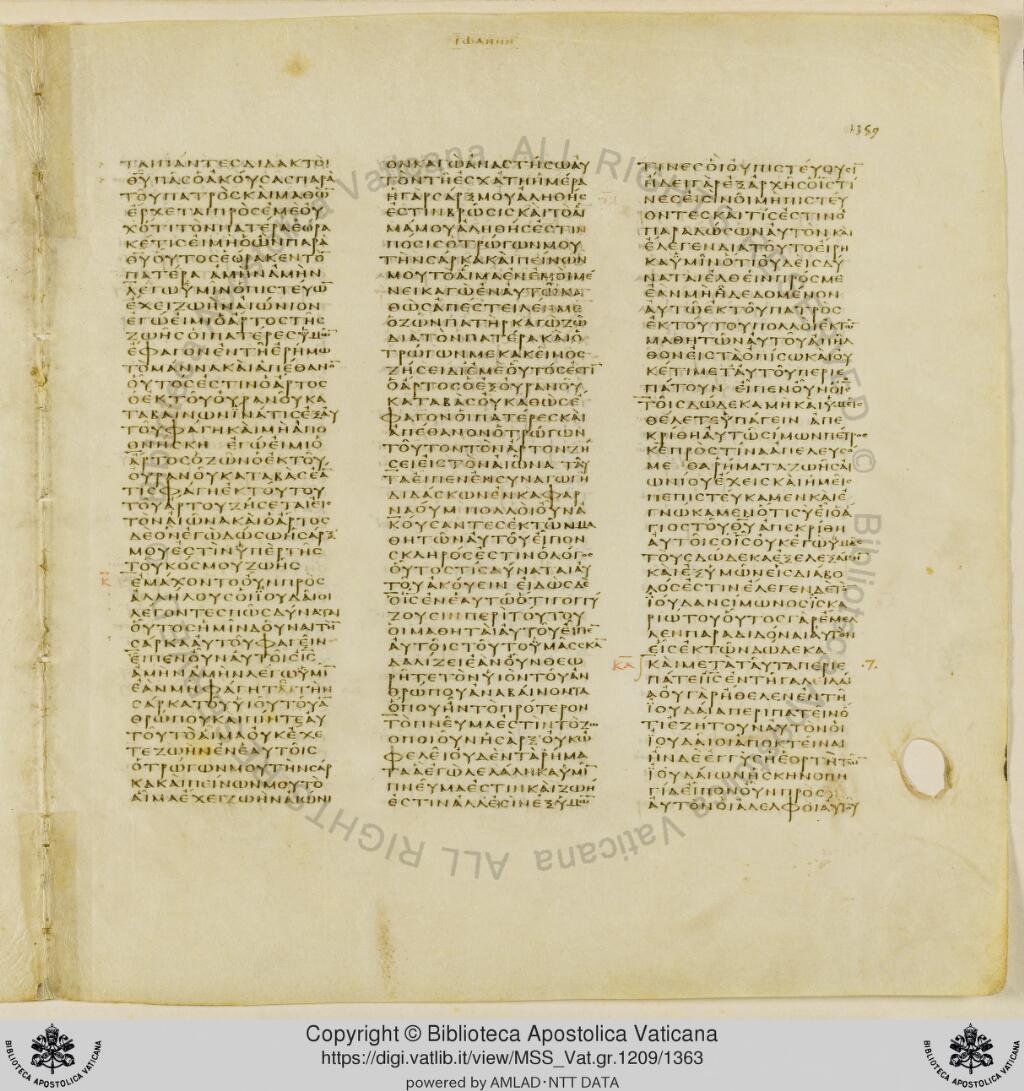 ΙΩΑΝΗΝ
1359
ΤΑΙ ΠΑΝΤΕΣ ΔΙΔΑΚΤΟΙ
ΘΥ ΠΑΣ Ο ΑΚΟΥΣΑΣ ΠΑΡΑ
ΤΟΥ ΠΑΤΡΟΣ ΚΑΙ ΜΑΘΩ
ΕΡΧΕΤΑΙ ΠΡΟΣ ΕΜΕ ΟΥ
ΧΟΤΙ ΤΟΝ ΠΑΤΕΡΑ ΕΩΡΑ
ΚΕ ΤΙΣ ΕΙ ΜΗ Ο ΩΝ ΠΑΡΑ
ΘΥ ΟΥΤΟΣ ΕΩΡΑΚΕΝ ΤΟ
ΠΑΤΕΡΑ ΑΜΗΝ ΑΜΗΝ
ΛΕΓΩ ΥΜΙΝ Ο ΠΙΣΤΕΥΩ
ΕΧΕΙ ΖΩΗΝ ΑΙΩΝΙΟΝ
ΕΓΩ ΕΙΜΙ Ο ΑΡΤΟΣ ΤΗΣ
ΖΩΗΣ ΟΙ ΠΑΤΕΡΕΣ ΥΜΩ
ΕΦΑΓΟΝ ΕΝ ΤΗ ΕΡΗΜΩ
ΤΟ ΜΑΝΝΑ ΚΑΙ ΑΠΕΘΑΝΟ
ΟΥΤΟΣ ΕΣΤΙΝ Ο ΑΡΤΟΣ
Ο ΕΚ ΤΟΥ ΟΥΡΑΝΟΥ ΚΑ
ΤΑΒΑΙΝΩΝ ΙΝΑ ΤΙΣ ΕΞ ΑΥ
ΤΟΥ ΦΑΓΗ ΚΑΙ ΜΗ ΑΠΟ
ΘΝΗΣΚΗ ΕΓΩ ΕΙΜΙ Ο
ΑΡΤΟΣ Ο ΖΩΝ Ο ΕΚ ΤΟΥ
ΟΥΡΑΝΟΥ ΚΑΤΑΒΑΣ ΕΑ
ΤΙΣ ΦΑΓΗ ΕΚ ΤΟΥΤΟΥ
ΤΟΥ ΑΡΤΟΥ ΖΗΣΕΤΑΙ ΕΙΣ
ΤΟΝ ΑΙΩΝΑ ΚΑΙ Ο ΑΡΤΟΣ
ΔΕ ΟΝ ΕΓΩ ΔΩΣΩ Η ΣΑΡΞ
ΜΟΥ ΕΣΤΙΝ ΥΠΕΡ ΤΗΣ
ΤΟΥ ΚΟΣΜΟΥ ΖΩΗΣ
Κ ΕΜΑΧΟΝΤΟ ΟΥΝ ΠΡΟΣ
ΑΛΛΗΛΟΥΣ ΟΙ ΙΟΥΔΑΙΟΙ
ΛΕΓΟΝΤΕΣ ΠΩΣ ΔΥΝΑΤΑΙ
ΟΥΤΟΣ ΗΜΙΝ ΔΟΥΝΑΙ ΤΗ
ΣΑΡΚΑ ΑΥΤΟΥ ΦΑΓΕΙΝ
ΕΙΠΕΝ ΟΥΝ ΑΥΤΟΙΣ Ο ΙΣ
ΑΜΗΝ ΑΜΗΝ ΛΕΓΩ ΥΜΙ
ΕΑΝ ΜΗ ΦΑΓΗΤΕ ΤΗΝ
ΣΑΡΚΑ ΤΟΥ ΥΙΟΥ ΤΟΥ Α
ΘΡΩΠΟΥ ΚΑΙ ΠΙΗΤΕ ΑΥ
ΤΟΥ ΤΟ ΑΙΜΑ ΟΥΚ ΕΧΕ
ΤΕ ΖΩΗΝ ΕΝ ΕΑΥΤΟΙΣ
Ο ΤΡΩΓΩΝ ΜΟΥ ΤΗΝ ΣΑΡ
ΚΑ ΚΑΙ ΠΕΙΝΩΝ ΜΟΥ ΤΟ
ΑΙΜΑ ΕΧΕΙ ΖΩΗΝ ΑΙΩΝΙ
ΟΝ ΚΑΓΩ ΑΝΑΣΤΗΣΩ ΑΥ
ΤΟΝ ΤΗ ΕΣΧΑΤΗ ΗΜΕΡΑ
Η ΓΑΡ ΣΑΡΞ ΜΟΥ ΑΛΗΘΗΣ
ΕΣΤΙΝ ΒΡΩΣΙΣ ΚΑΙ ΤΟ ΑΙ
ΜΑ ΜΟΥ ΑΛΗΘΗΣ ΕΣΤΙΝ
ΠΟΣΙΣ Ο ΤΡΩΓΩΝ ΜΟΥ
ΤΗΝ ΣΑΡΚΑ ΚΑΙ ΠΕΙΝΩΝ
ΜΟΥ ΤΟ ΑΙΜΑ ΕΝ ΕΜΟΙ ΜΕ
ΝΕΙ ΚΑΓΩ ΕΝ ΑΥΤΩ ΚΑ
ΘΩΣ ΑΠΕΣΤΕΙΛΕΝ ΜΕ
Ο ΖΩΝ ΠΑΤΗΡ ΚΑΓΩ ΖΩ
ΔΙΑ ΤΟΝ ΠΑΤΕΡΑ ΚΑΙ Ο
ΤΡΩΓΩΝ ΜΕ ΚΑΚΕΙΝΟΣ
ΖΗΣΕΙ ΔΙ ΕΜΕ ΟΥΤΟΣ ΕΣΤΙ
Ο ΑΡΤΟΣ Ο ΕΞ ΟΥΡΑΝΟΥ
ΚΑΤΑΒΑΣ ΟΥ ΚΑΘΩΣ Ε
ΦΑΓΟΝ ΟΙ ΠΑΤΕΡΕΣ ΚΑΙ
ΑΠΕΘΑΝΟΝ Ο ΤΡΩΓΩΝ
ΤΟΥΤΟΝ ΤΟΝ ΑΡΤΟΝ ΖΗ
ΣΕΙ ΕΙΣ ΤΟΝ ΑΙΩΝΑ ΤΑΥ
ΤΑ ΕΙΠΕΝ ΕΝ ΣΥΝΑΓΩΓΗ
ΔΙΔΑΣΚΩΝ ΕΝ ΚΑΦΑΡ
ΝΑΟΥΜ ΠΟΛΛΟΙ ΟΥΝ Α
ΚΟΥΣΑΝΤΕΣ ΕΚ ΤΩΝ ΜΑ
ΘΗΤΩΝ ΑΥΤΟΥ ΕΙΠΟΝ
ΣΚΛΗΡΟΣ ΕΣΤΙΝ Ο ΛΟΓΟΣ
ΟΥΤΟΣ ΤΙΣ ΔΥΝΑΤΑΙ ΑΥ
ΤΟΥ ΑΚΟΥΕΙΝ ΕΙΔΩΣ ΔΕ
Ο ΙΣ ΕΝ ΕΑΥΤΩ ΟΤΙ ΓΟΓΓΥ
ΖΟΥΣΙΝ ΠΕΡΙ ΤΟΥΤΟΥ
ΟΙ ΜΑΘΗΤΑΙ ΑΥΤΟΥ ΕΙΠΕ
ΑΥΤΟΙΣ ΤΟΥΤΟ ΥΜΑΣ ΣΚΑ
ΔΑΛΙΖΕΙ ΕΑΝ ΟΥΝ ΘΕΩ
ΡΗΤΕ ΤΟΝ ΥΙΟΝ ΤΟΥ ΑΝ
ΘΡΩΠΟΥ ΑΝΑΒΑΙΝΟΝΤΑ
ΟΠΟΥ ΗΝ ΤΟ ΠΡΟΤΕΡΟΝ
ΤΟ ΠΝΕΥΜΑ ΕΣΤΙΝ ΤΟ ΖΩ
ΟΠΟΙΟΥΝ Η ΣΑΡΞ ΟΥΚ Ω
ΦΕΛΕΙ ΟΥΔΕΝ ΤΑ ΡΗΜΑ
ΤΑ Α ΕΓΩ ΛΕΛΑΛΗΚΑ ΥΜΙ
ΠΝΕΥΜΑ ΕΣΤΙΝ ΚΑΙ ΖΩΗ
ΕΣΤΙΝ ΑΛΛ ΕΙΣΙΝ ΕΞ ΥΜΩ
ΤΙΝΕΣ ΟΙ ΟΥ ΠΙΣΤΕΥΟΥΣΙ
ΗΔΕΙ ΓΑΡ ΕΞ ΑΡΧΗΣ Ο ΙΣ ΤΙ
ΝΕΣ ΕΙΣΙΝ ΟΙ ΜΗ ΠΙΣΤΕΥ
ΟΝΤΕΣ ΚΑΙ ΤΙΣ ΕΣΤΙΝ Ο
ΠΑΡΑΔΩΣΩΝ ΑΥΤΟΝ ΚΑΙ
ΕΛΕΓΕΝ ΔΙΑ ΤΟΥΤΟ ΕΙΡΗ
ΚΑ ΥΜΙΝ ΟΤΙ ΟΥΔΕΙΣ ΔΥ
ΝΑΤΑΙ ΕΛΘΕΙΝ ΠΡΟΣ ΜΕ
ΕΑΝ ΜΗ Η ΔΕΔΟΜΕΝΟΝ
ΑΥΤΩ ΕΚ ΤΟΥ ΠΑΤΡΟΣ
ΕΚ ΤΟΥΤΟΥ ΠΟΛΛΟΙ ΕΚ ΤΩ
ΜΑΘΗΤΩΝ ΑΥΤΟΥ ΑΠΗΛ
ΘΟΝ ΕΙΣ ΤΑ ΟΠΙΣΩ ΚΑΙ ΟΥ
ΚΕΤΙ ΜΕΤ ΑΥΤΟΥ ΠΕΡΙΕ
ΠΑΤΟΥΝ ΕΙΠΕΝ ΟΥΝ Ο ΙΣ
ΤΟΙΣ ΔΩΔΕΚΑ ΜΗ ΚΑΙ ΥΜΕΙΣ
ΘΕΛΕΤΕ ΥΠΑΓΕΙΝ ΑΠΕ
ΚΡΙΘΗ ΑΥΤΩ ΣΙΜΩΝ ΠΕΤΡΟΣ
ΚΕ ΠΡΟΣ ΤΙΝΑ ΑΠΕΛΕΥΣΟ
ΜΕΘΑ ΡΗΜΑΤΑ ΖΩΗΣ ΑΙ
ΩΝΙΟΥ ΕΧΕΙΣ ΚΑΙ ΗΜΕΙΣ
ΠΕΠΙΣΤΕΥΚΑΜΕΝ ΚΑΙ Ε
ΓΝΩΚΑΜΕΝ ΟΤΙ ΣΥ ΕΙ Ο Α
ΓΙΟΣ ΤΟΥ ΘΥ ΑΠΕΚΡΙΘΗ
ΑΥΤΟΙΣ Ο ΙΣ ΟΥΚ ΕΓΩ ΥΜΑΣ
ΤΟΥΣ ΔΩΔΕΚΑ ΕΞΕΛΕΞΑΜΗ
ΚΑΙ ΕΞ ΥΜΩΝ ΕΙΣ ΔΙΑΒΟ
ΛΟΣ ΕΣΤΙΝ ΕΛΕΓΕΝ ΔΕ ΤΟ
ΙΟΥΔΑΝ ΣΙΜΩΝΟΣ ΙΣΚΑ
ΡΙΩΤΟΥ ΟΥΤΟΣ ΓΑΡ ΕΜΕΛ
ΛΕΝ ΠΑΡΑΔΙΔΟΝΑΙ ΑΥΤΟΝ
ΕΙΣ ΕΚ ΤΩΝ ΔΩΔΕΚΑ
ΚΑ ΚΑΙ ΜΕΤΑ ΤΑΥΤΑ ΠΕΡΙΕ ·7·
ΠΑΤΕΙ Ο ΙΣ ΕΝ ΤΗ ΓΑΛΕΙΛΑΙ
Α ΟΥ ΓΑΡ ΗΘΕΛΕΝ ΕΝ ΤΗ
ΙΟΥΔΑΙΑ ΠΕΡΙΠΑΤΕΙΝ Ο
ΤΙ ΕΖΗΤΟΥΝ ΑΥΤΟΝ ΟΙ
ΙΟΥΔΑΙΟΙ ΑΠΟΚΤΕΙΝΑΙ
ΗΝ ΔΕ ΕΓΓΥΣ Η ΕΟΡΤΗ ΤΩ
ΙΟΥΔΑΙΩΝ Η ΣΚΗΝΟΠΗ
ΓΙΑ ΕΙΠΟΝ ΟΥΝ ΠΡΟΣ
ΑΥΤΟΝ ΟΙ ΑΔΕΛΦΟΙ ΑΥΤΟΥ
Copyright © Biblioteca Apostolica Vaticana
https://digi.vatlib.it/view/MSS_Vat.gr.1209/1363
powered by AMLAD·NTT DATA
BIBLIOTECA APOSTOLICA VATICANA
BIBLIOTECA APOSTOLICA VATICANA